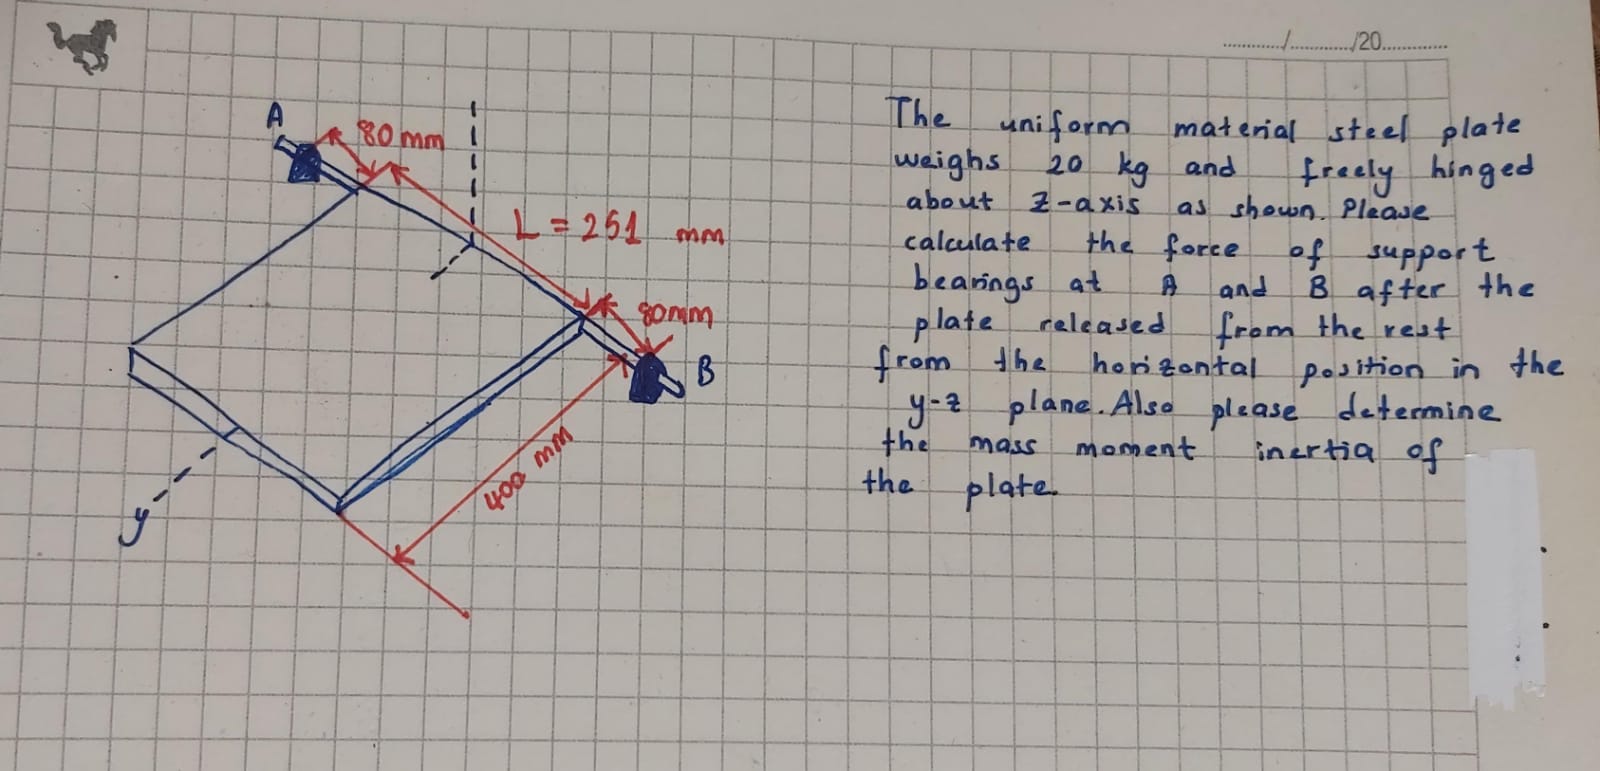 ............/............/20............
A
80 mm
L = 251 mm
80mm
B
400 mm
y
The uniform material steel plate
weighs 20 kg and freely hinged
about z-axis as shown. Please
calculate the force of support
bearings at A and B after the
plate released from the rest
from the horizontal position in the
y-z plane. Also please determine
the mass moment inertia of
the plate.